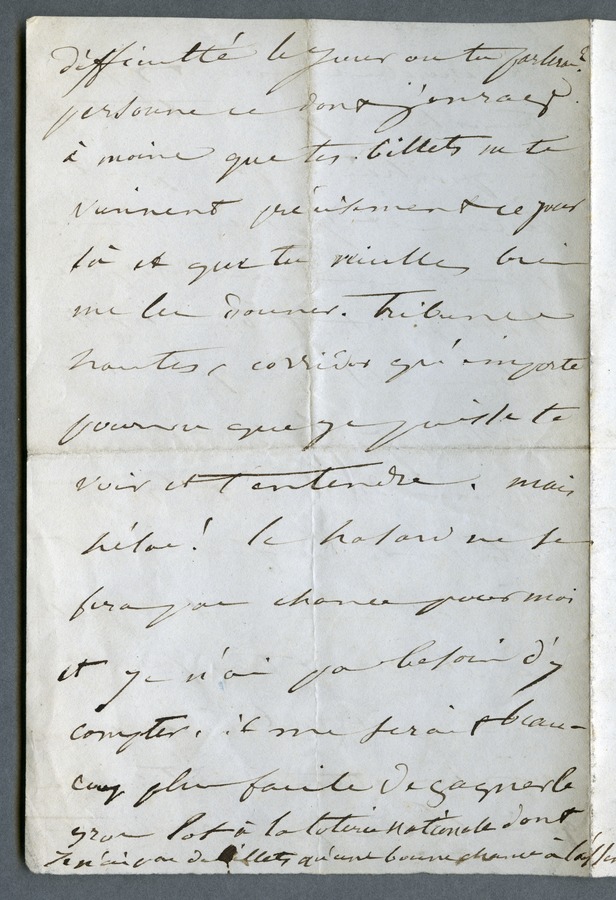 difficulté le jour où tu parleras
personne ce dont j'enrage.
à moins que tes billets ne te
viennent précisément ce jour
là et que tu veuilles bien
me les donner. Tribunes
hautes, corridor qu'importe
pourvu que je puisse te
voir et t'entendre. mais
hélas! le hasard ne se
fera pas chance pour moi
et je n'ai pas besoin d'y
compter. il me serait beau-
coup plus facile de gagner le
gros lot à la loterie nationale dont
je n'ai pas de billets qu'une bonne chance à